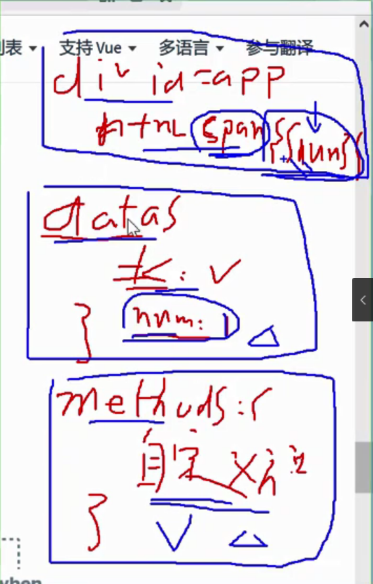 列表 支持 Vue 多语言 参与翻译
div id=app
html span {{num}}
datas
k: v
num: 1
}
methods:{
自定义方法
}